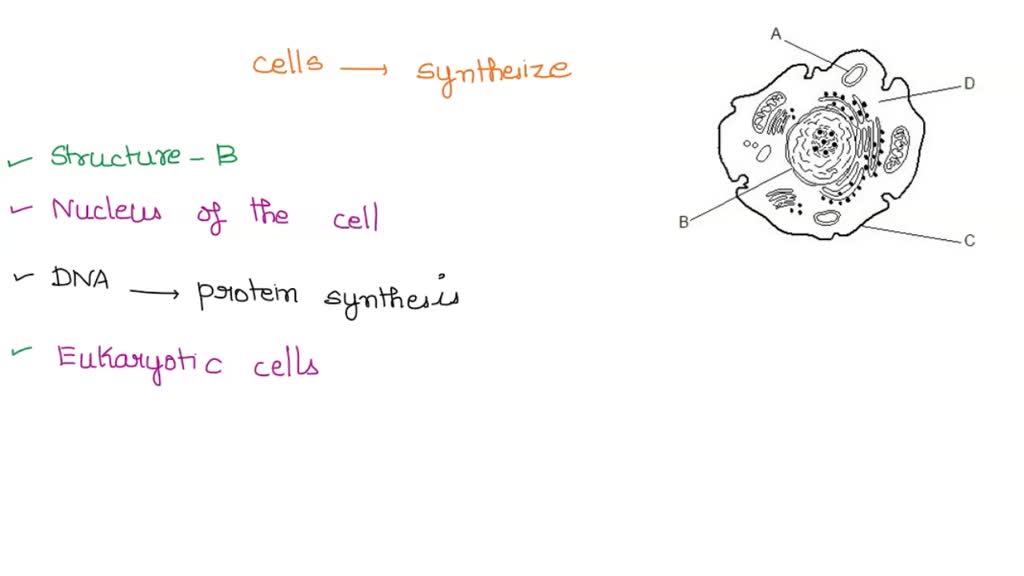 cells → synthesize
✓ Structure - B
✓ Nucleus of the cell
✓ DNA → protein synthesis
✓ Eukaryotic cells
A
D
B
C